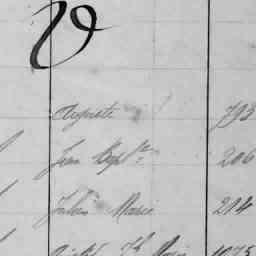 V
Auguste 793
Jean Bapte 206
Jules Marie 214
1075